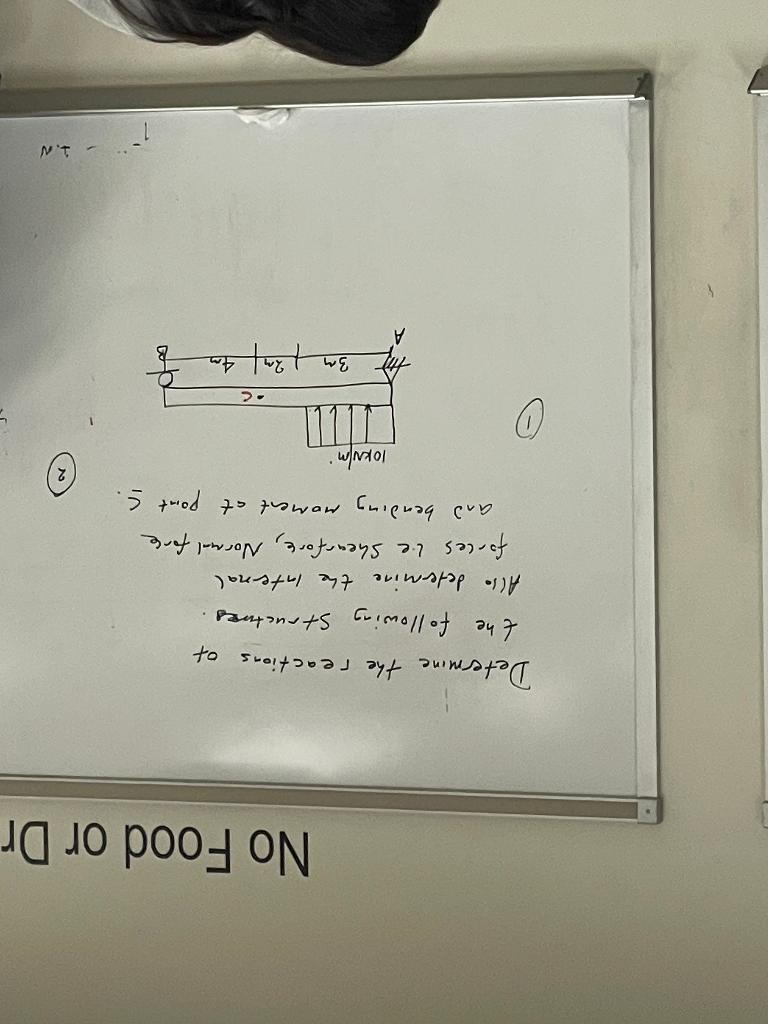 No Food or Dr
Determine the reactions of
the following Structures.
Also determine the Internal
forces i.e Shearforce, Normal force
and bending moment at point C.
①
②
10kN/m
C
3m 2m 4m
A
B